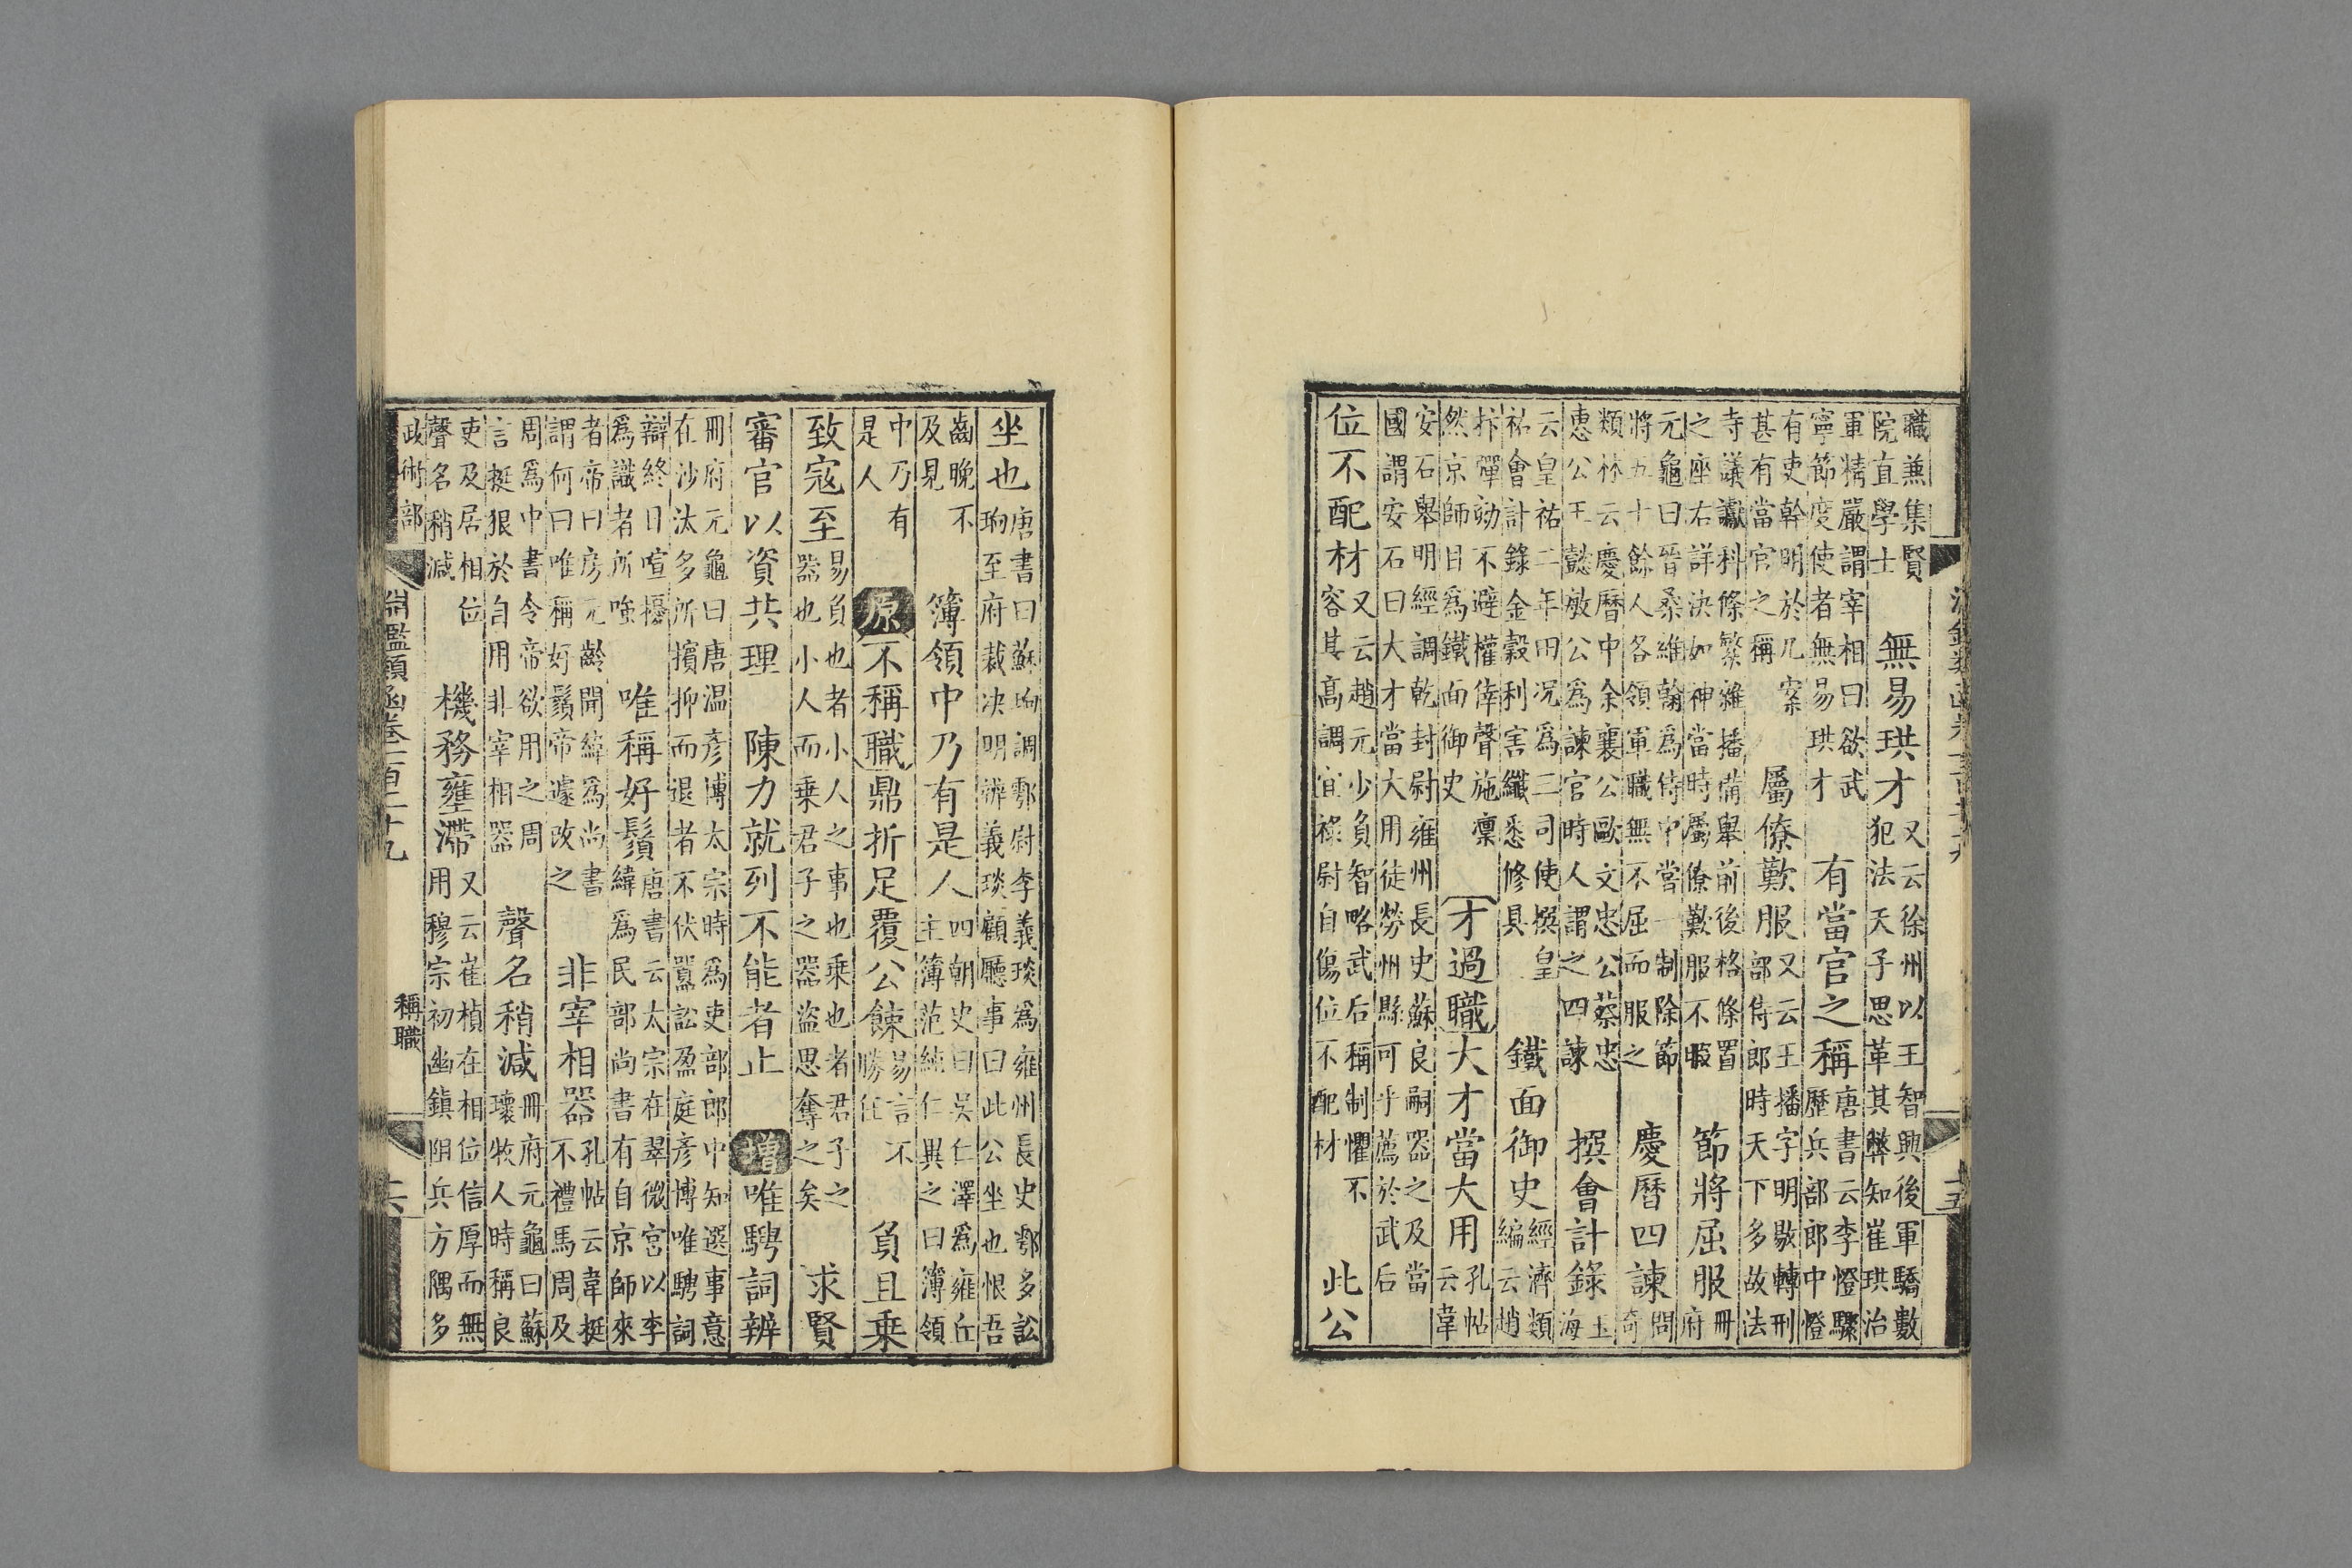 職兼集賢院直學士 無易珙才 又云徐州以王智興後軍驕數犯法天子思革其弊知崔珙治
軍精嚴謂宰相曰欲武寧節度使者無易珙才 有當官之稱 唐書云李憕驟歷兵部郎中憕
有吏幹明於几案甚有當官之稱 屬僚歎服 又云王播字明敭轉刑部侍郎時天下多故法
寺議讞科條繁雜播備舉前後格條置之座右詳決如神當時屬僚歎服不暇 節將屈服 冊府
元龜曰晉桑維翰爲侍中嘗一制除節將五十餘人各領軍職無不屈而服之 慶曆四諫 問奇
類林云慶曆中余襄公歐文忠公蔡忠惠公王懿敏公爲諫官時人謂之四諫 撰會計錄 玉海
云皇祐二年田況爲三司使撰皇祐會計錄金穀利害纖悉修具 鐵面御史 經濟類編云趙
抃彈劾不避權倖聲施凜然京師目爲鐵面御史 才過職 大才當大用 孔帖云韋
安石舉明經調乾封尉雍州長史蘇良嗣器之及當國謂安石曰大才當大用徒勞州縣可乎薦於武后
位不配材 又云趙元少負智略武后稱制懼不容其高調宜祿尉自傷位不配材 此公
坐也 唐書曰蘇珦調鄠尉李義琰爲雍州長史鄠多訟珦至府裁決明辨義琰顧廳事曰此公坐也恨吾
齒晚不及見 簿領中乃有是人 四朝史曰吳仁澤爲雍丘主簿范純仁異之曰簿領
中乃有是人 原 不稱職 鼎折足覆公餗 易言不勝任 負且乘
致寇至 易負也者小人之事也乘也者君子之器也小人而乘君子之器盜思奪之矣 求賢
審官以資共理 陳力就列不能者止 增 唯騁詞辨
冊府元龜曰唐温彥博太宗時爲吏部郎中知選事意在沙汰多所擯抑而退者不伏囂訟盈庭彥博唯騁詞
辯終日喧擾爲識者所嗤 唯稱好鬚 唐書云太宗在翠微宮以李緯爲民部尚書有自京師來
者帝曰房元齡聞緯爲尚書謂何曰唯稱好鬚帝遽改之 非宰相器 孔帖云韋挺不禮馬周及
周爲中書令帝欲用之周言挺狠於自用非宰相器 聲名稍減 冊府元龜曰蘇瓌牧人時稱良
吏及居相位聲名稍減 機務壅滯 又云崔植在相位信厚而無用穆宗初幽鎮阻兵方隅多
政術部 淵鑑類函卷一百二十九 稱職